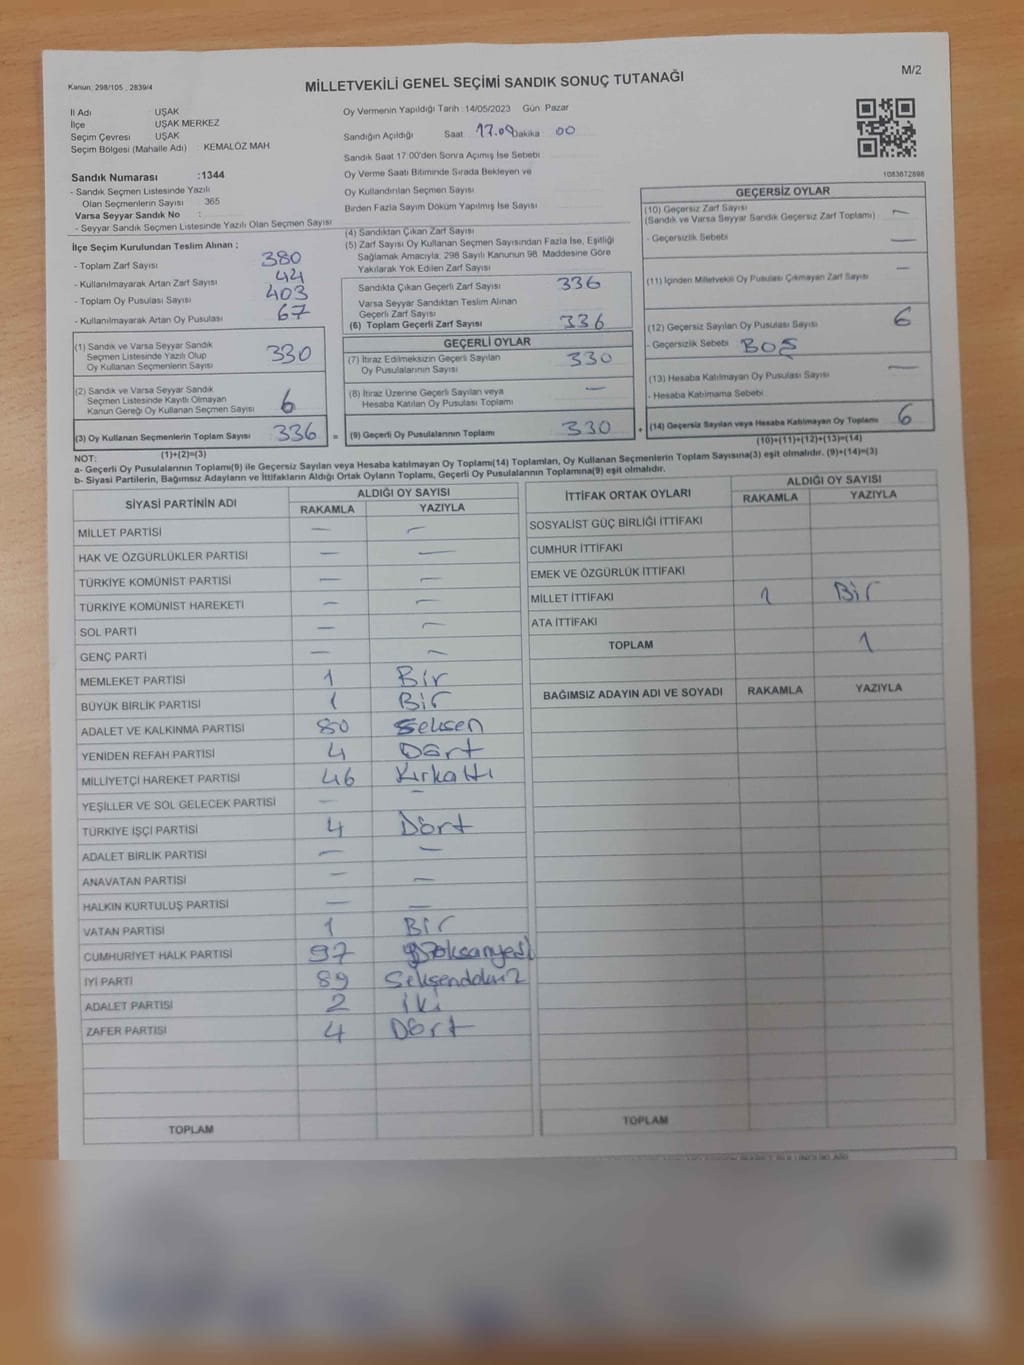 Kanun: 298/105, 2839/4
MİLLETVEKİLİ GENEL SEÇİMİ SANDIK SONUÇ TUTANAĞI
M/2
İl Adı UŞAK
İlçe UŞAK MERKEZ
Seçim Çevresi UŞAK
Seçim Bölgesi (Mahalle Adı) : KEMALÖZ MAH
Sandık Numarası :1344
- Sandık Seçmen Listesinde Yazılı
Olan Seçmenlerin Sayısı : 365
Varsa Seyyar Sandık No :
- Seyyar Sandık Seçmen Listesinde Yazılı Olan Seçmen Sayısı
Oy Vermenin Yapıldığı Tarih 14/05/2023 Gün Pazar
Sandığın Açıldığı Saat 17.00 Dakika 00
Sandık Saat 17:00'den Sonra Açımış İse Sebebi
Oy Verme Saati Bitiminde Sırada Bekleyen ve
Oy Kullandırılan Seçmen Sayısı
Birden Fazla Sayım Döküm Yapılmış İse Sayısı
1083672898
İlçe Seçim Kurulundan Teslim Alınan ;
- Toplam Zarf Sayısı 380
- Kullanılmayarak Artan Zarf Sayısı 44
- Toplam Oy Pusulası Sayısı 403
- Kullanılmayarak Artan Oy Pusulası 67
(1) Sandık ve Varsa Seyyar Sandık
Seçmen Listesinde Yazılı Olup
Oy Kullanan Seçmenlerin Sayısı 330
(2) Sandık ve Varsa Seyyar Sandık
Seçmen Listesinde Kayıtlı Olmayan
Kanun Gereği Oy Kullanan Seçmen Sayısı 6
(3) Oy Kullanan Seçmenlerin Toplam Sayısı 336 =
(4) Sandıktan Çıkan Zarf Sayısı
(5) Zarf Sayısı Oy Kullanan Seçmen Sayısından Fazla İse, Eşitliği
Sağlamak Amacıyla, 298 Sayılı Kanunun 98. Maddesine Göre
Yakılarak Yok Edilen Zarf Sayısı
Sandıkta Çıkan Geçerli Zarf Sayısı 336
Varsa Seyyar Sandıktan Teslim Alınan
Geçerli Zarf Sayısı
(6) Toplam Geçerli Zarf Sayısı 336
GEÇERLİ OYLAR
(7) İtiraz Edilmeksizin Geçerli Sayılan
Oy Pusulalarının Sayısı 330
(8) İtiraz Üzerine Geçerli Sayılan veya
Hesaba Katılan Oy Pusulası Toplamı —
(9) Geçerli Oy Pusulalarının Toplamı 330 +
GEÇERSİZ OYLAR
(10) Geçersiz Zarf Sayısı
(Sandık ve Varsa Seyyar Sandık Geçersiz Zarf Toplamı) —
- Geçersizlik Sebebi —
(11) İçinden Milletvekili Oy Pusulası Çıkmayan Zarf Sayısı —
(12) Geçersiz Sayılan Oy Pusulası Sayısı 6
- Geçersizlik Sebebi BOŞ
(13) Hesaba Katılmayan Oy Pusulası Sayısı —
- Hesaba Katılmama Sebebi
(14) Geçersiz Sayılan veya Hesaba Katılmayan Oy Toplamı 6
NOT: (1)+(2)=(3) (10)+(11)+(12)+(13)=(14)
a- Geçerli Oy Pusulalarının Toplamı(9) ile Geçersiz Sayılan veya Hesaba katılmayan Oy Toplamı(14) Toplamları, Oy Kullanan Seçmenlerin Toplam Sayısına(3) eşit olmalıdır. (9)+(14)=(3)
b- Siyasi Partilerin, Bağımsız Adayların ve İttifakların Aldığı Ortak Oyların Toplamı, Geçerli Oy Pusulalarının Toplamına(9) eşit olmalıdır.
SİYASİ PARTİNİN ADI ALDIĞI OY SAYISI
RAKAMLA YAZIYLA
MİLLET PARTİSİ — —
HAK VE ÖZGÜRLÜKLER PARTİSİ — —
TÜRKİYE KOMÜNİST PARTİSİ — —
TÜRKİYE KOMÜNİST HAREKETİ — —
SOL PARTİ — —
GENÇ PARTİ — —
MEMLEKET PARTİSİ 1 Bir
BÜYÜK BİRLİK PARTİSİ 1 Bir
ADALET VE KALKINMA PARTİSİ 80 Seksen
YENİDEN REFAH PARTİSİ 4 Dört
MİLLİYETÇİ HAREKET PARTİSİ 46 Kırkaltı
YEŞİLLER VE SOL GELECEK PARTİSİ — —
TÜRKİYE İŞÇİ PARTİSİ 4 Dört
ADALET BİRLİK PARTİSİ — —
ANAVATAN PARTİSİ — —
HALKIN KURTULUŞ PARTİSİ — —
VATAN PARTİSİ 1 Bir
CUMHURİYET HALK PARTİSİ 97 Doksanyedi
İYİ PARTİ 89 Seksendokuz
ADALET PARTİSİ 2 İki
ZAFER PARTİSİ 4 Dört
TOPLAM
İTTİFAK ORTAK OYLARI ALDIĞI OY SAYISI
RAKAMLA YAZIYLA
SOSYALİST GÜÇ BİRLİĞİ İTTİFAKI
CUMHUR İTTİFAKI
EMEK VE ÖZGÜRLÜK İTTİFAKI
MİLLET İTTİFAKI 1 Bir
ATA İTTİFAKI
TOPLAM 1
BAĞIMSIZ ADAYIN ADI VE SOYADI RAKAMLA YAZIYLA
TOPLAM